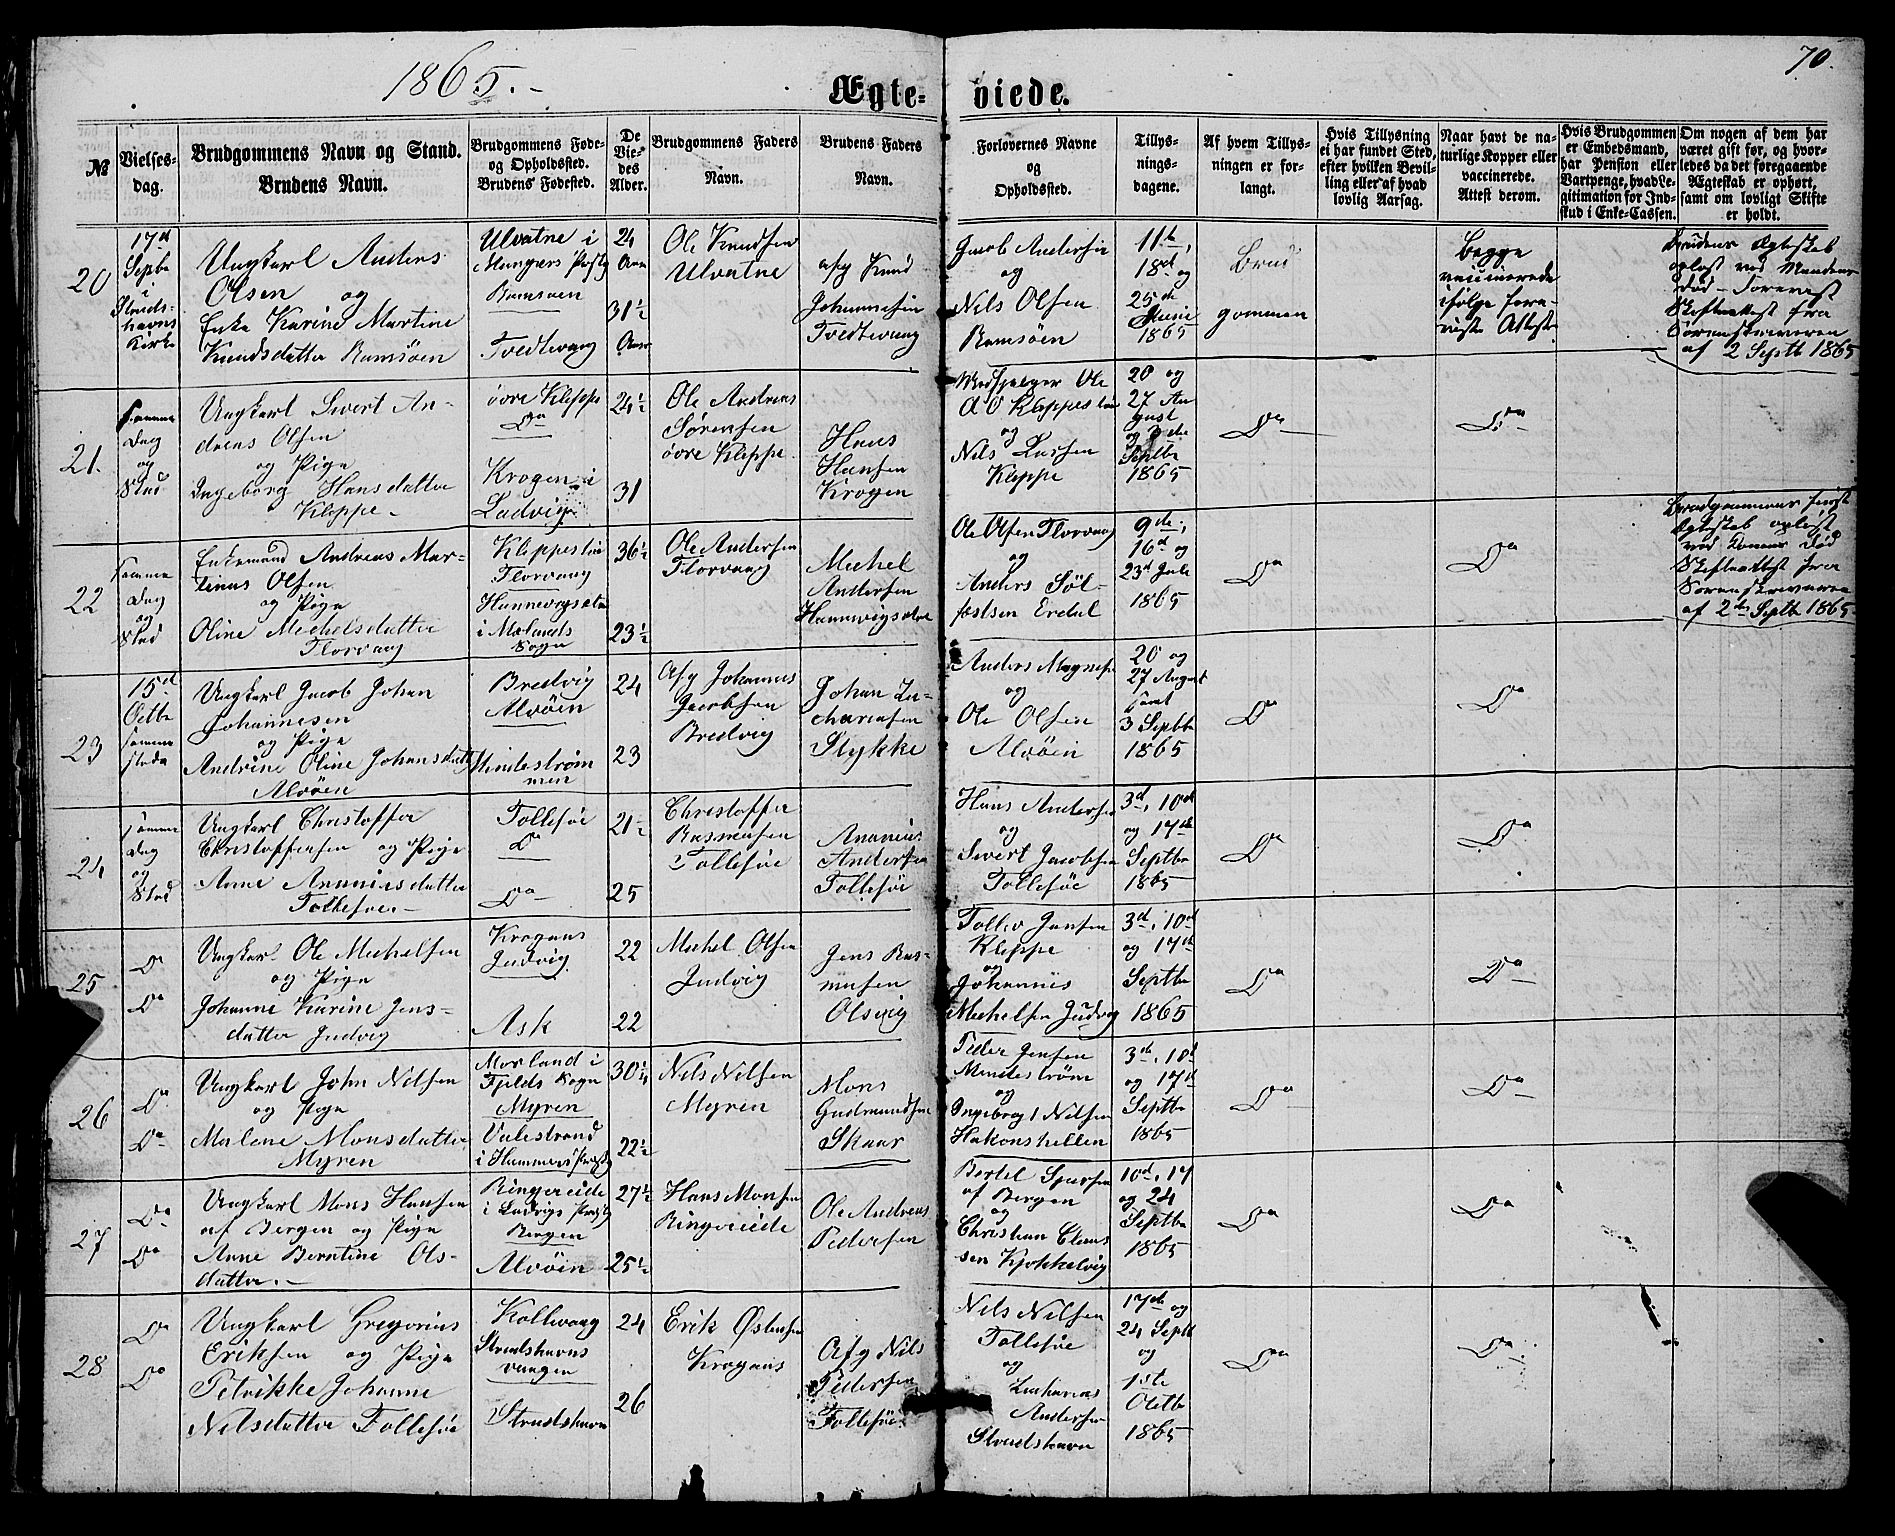 1865.
70.
Ægte- viede.
№
Vielses-
dag.
Brudgommens Navn og Stand.
Brudens Navn.
Brudgommens Føde-
og Opholdssted.
Brudens Fødested.
De
Vie-
des
Alder.
Brudgommens Faders
Navn.
Brudens Faders
Navn.
Forlovernes Navne
og
Opholdssted.
Tillys-
nings-
dagene.
Af hvem Tillys-
ningen er for-
langt.
Hvis Tillysning
ei har fundet Sted,
efter hvilken Bevil-
ling eller af hvad
lovlig Aarsag.
Naar havt de na-
turlige Kopper eller
vaccinerede.
Attest derom.
Hvis Brudgommen
er Embedsmand,
har Pension eller
Vartpenge, hvad Le-
gitimation for Ind-
skud i Enke-Cassen.
Om nogen af dem har
været gift før, og hvor-
ledes da det foregaaende
Ægteskab er ophørt,
samt om lovligt Skifte
er holdt.
20
17d
Septbr
i
Struds-
havns
Kirke
Ungkarl Anders
Olsen og
Enke Karine Martine
Knudsdatter Ramsøen
Ulvatne i
Mangers Prstg
Ramsøen
Tvedtevaag
24
Aar
31½
Aar
Ole Knudsen
Ulvatne
afg Knud
Johannesen
Tvedtevaag
Jacob Andersen
og
Nils Olsen
Ramsøen
11te,
18d og
25de
Juni
1865
Brud
gommen
Begge
vaccinerede
ifølge fore-
viste Attester
Brudens Ægteskab
opløst ved Mandens
Død - Forevist
Skifteattest fra
Sorenskriveren
af 2 Septb 1865
21.
samme
Dag
og
Sted
Ungkarl Sivert An-
dreas Olsen
og Pige
Ingeborg Hansdatter
Kleppe -
øvre Kleppe
Do
Krogen i
Ladvig
24½
31
Ole Andreas
Sørensen
øvre Kleppe.
Hans
Hansen
Krogen
Ole
Kleppestøe
og
Nils Larsen
Kleppe
20 og
27 Au
gust
og 3de
Septbr
1865
Do
Do
22
samme
Dag
og
Sted
Enkemand Andreas Mar-
tinus Olsen
og Pige
Oline Michelsdatter
Florvaag
Kleppestøe
Florvaag
i Mælands
Sogn
36½
23½
Ole Andersen
Florvaag
Michel
Andersen
Ole Olsen Florvaag
og
Anders Søl-
festsen Erdal
9de,
16d og
23d Juli
1865
Do
Do
Brudgommens første
Ægteskab opløst
ved Konens Død
Skifteattest fra
Sorenskriveren
af 2den Septbr 1865
23
15d
Octbr
samme
Sted
Ungkarl Jacob Johan
Johannesen
og Pige
Andrine Oline Johansdatter
Alvøen
Bredvig
Alvøen
Mindestrøm
men
24
23
Afg Johannes
Jacobsen
Bredvig
Johan Za-
chariasen
Stykke
Anders Magnesen
og
Ole Olsen
Alvøen
20 og
27 August
samt
3 Septbr
1865
Do
Do
24
samme
Dag
og
Sted
Ungkarl Christoffer
Christoffersen og Pige
Anne Ananiasdatter
Follesøe -
Follesøe
Do
Do
21½
25
Christoffer
Rasmusen
Follesøe
Ananias
Andersen
Follesøe
Hans Andersen
og
Sivert Jacobsen
Follesøe
3d, 10d
og 17de
Septbr
1865
Do
Do
25
Do
Do
Ungkarl Ole Michelsen
og Pige
Johanne Karine Jens-
datter Juvig
Krogaas
Judvig
Ask
22
22
Michel Olsen
Judvig
Jens Ras-
musen
Olsvig
Tollev Jansen
Kleppe
og
Johannes
Michelsen Judvig
3d, 10d
og 17de
Septbr
1865
Do
Do
26
Do
Do
Ungkarl John Nilsen
og Pige
Malene Monsdatter
Myren
Morland i
Fjelds Sogn
Myren
Valestrand
i Hammers Prstg
30¼
22½
Nils Nilsen
Myren
Mons
Gudmundsen
Skaar
Peder Jensen
Mindestrøm
og
Ingebrigt Nilsen
Hakonshellen
3d, 10d
og 17d
Septbr
1865
Do
Do
27
Do
Do
Ungkarl Mons Hansen
af Bergen og Pige
Anne Berntine Ols-
datter. -
Ringereide
i Ladvigs Prstg
Bergen
Alvøen
27½
25½
Hans Monsen
Ringereide
Ole Andreas
Pedersen
Bertel Sjursen
af Bergen
og
Christian Claus
sen Kjøkkelvig
10d, 17
og 24
Septbr
1865
Do
Do
28
Do
Do
Ungkarl Gregorius
Eriksen og Pige
Petrikke Johanne
Nilsdatter Follesøe
Kollevaag
Strudshavns
vaagen
Strudshavn
24
26
Erik Østensen
Krogaas
Afg Nils
Pedersen
Follesøe.
Nils Nilsen
Follesøe
og
Zacharias
Andersen
Strudshavn
17de og
24 Septb
og
1ste
Octbr
1865
Do
Do